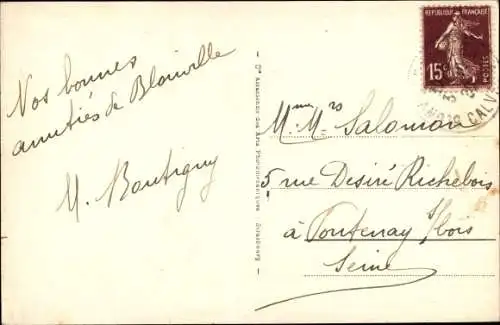 Nos bonnes
amitiés de Blainville
M. Boutigny
Cie Alsacienne des Arts Photomécaniques Strasbourg
REPUBLIQUE FRANÇAISE
15c
POSTES
CALV
Mme Mrs Salomon
5 rue Desiré Richebois
à Fontenay s/bois
Seine